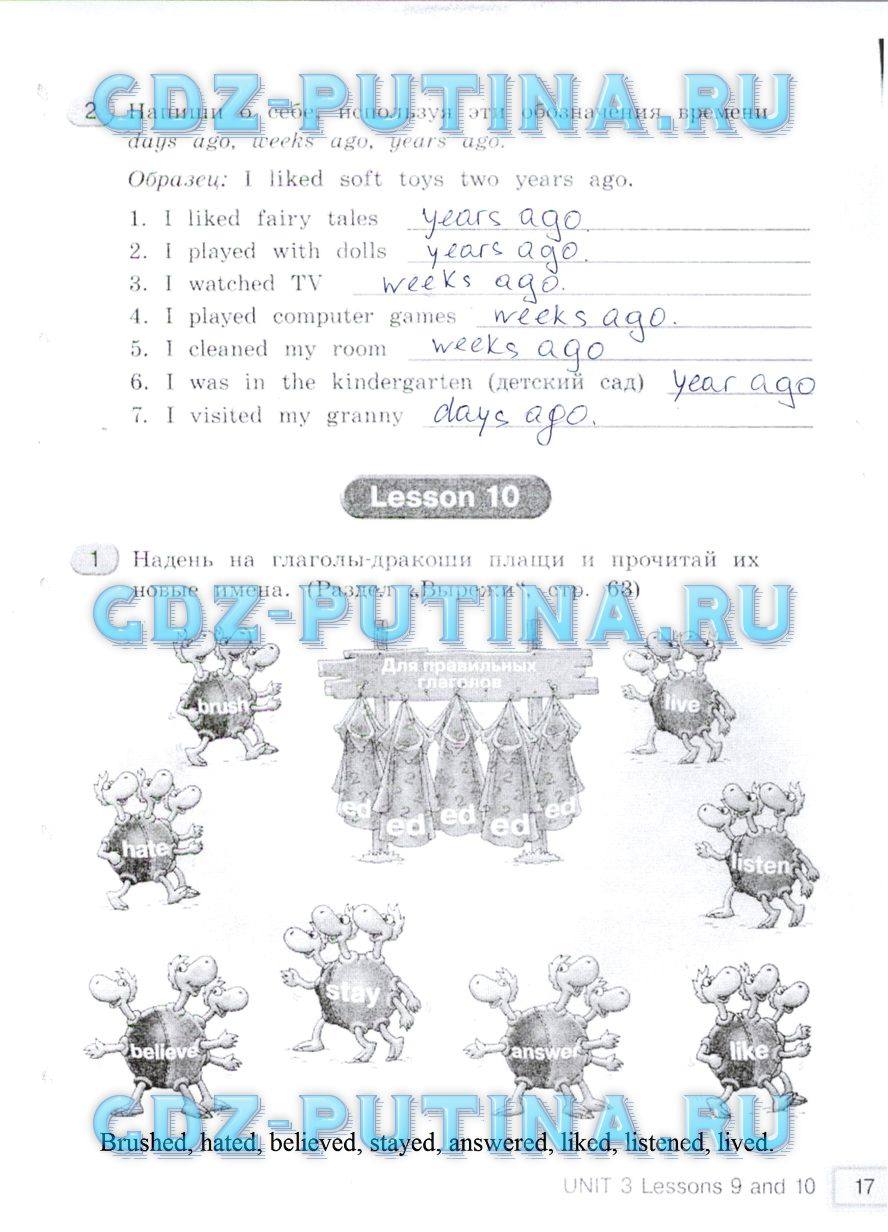 GDZ-PUTINA.RU
2 Напиши о себе, используя эти обозначения времени
days ago, weeks ago, years ago.
Образец: I liked soft toys two years ago.
1. I liked fairy tales years ago.
2. I played with dolls years ago.
3. I watched TV weeks ago.
4. I played computer games weeks ago.
5. I cleaned my room weeks ago
6. I was in the kindergarten (детский сад) year ago
7. I visited my granny days ago.
Lesson 10
1 Надень на глаголы-дракоши плащи и прочитай их
новые имена. (Раздел „Вырежи“, стр. 63)
GDZ-PUTINA.RU
Для правильных
глаголов
brush
live
ed ed ed ed ed
hate
listen
stay
believe
answer
like
GDZ-PUTINA.RU
Brushed, hated, believed, stayed, answered, liked, listened, lived.
UNIT 3 Lessons 9 and 10 17